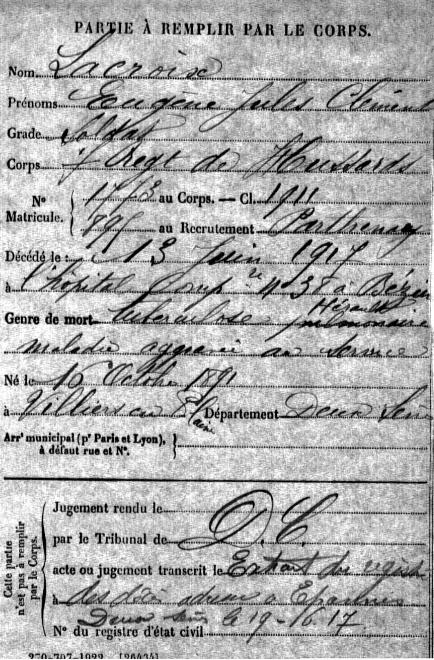 PARTIE À REMPLIR PAR LE CORPS.
Nom Lacroix
Prénoms Eugène Jules Clément
Grade Soldat
Corps 7 Regt de Hussards
N° Matricule. 1773 au Corps. — Cl. 1911
895 au Recrutement Parthenay
Décédé le : 13 Juin 1917
à l'hôpital Comp re n° 38 à Bézier
Hérault
Genre de mort tuberculose pulmonaire
maladie au service
Né le 16 Octobre 1891
à Villiers en Plaine Département Deux Sev
Arrt municipal (pr Paris et Lyon), à défaut rue et N°.
Cette partie n'est pas à remplir par le Corps.
Jugement rendu le
par le Tribunal de D. C.
acte ou jugement transcrit le Extrait du regist
à des décès adressé à
Deux Sevres le 19-
N° du registre d'état civil
270-707-1922. [26434]